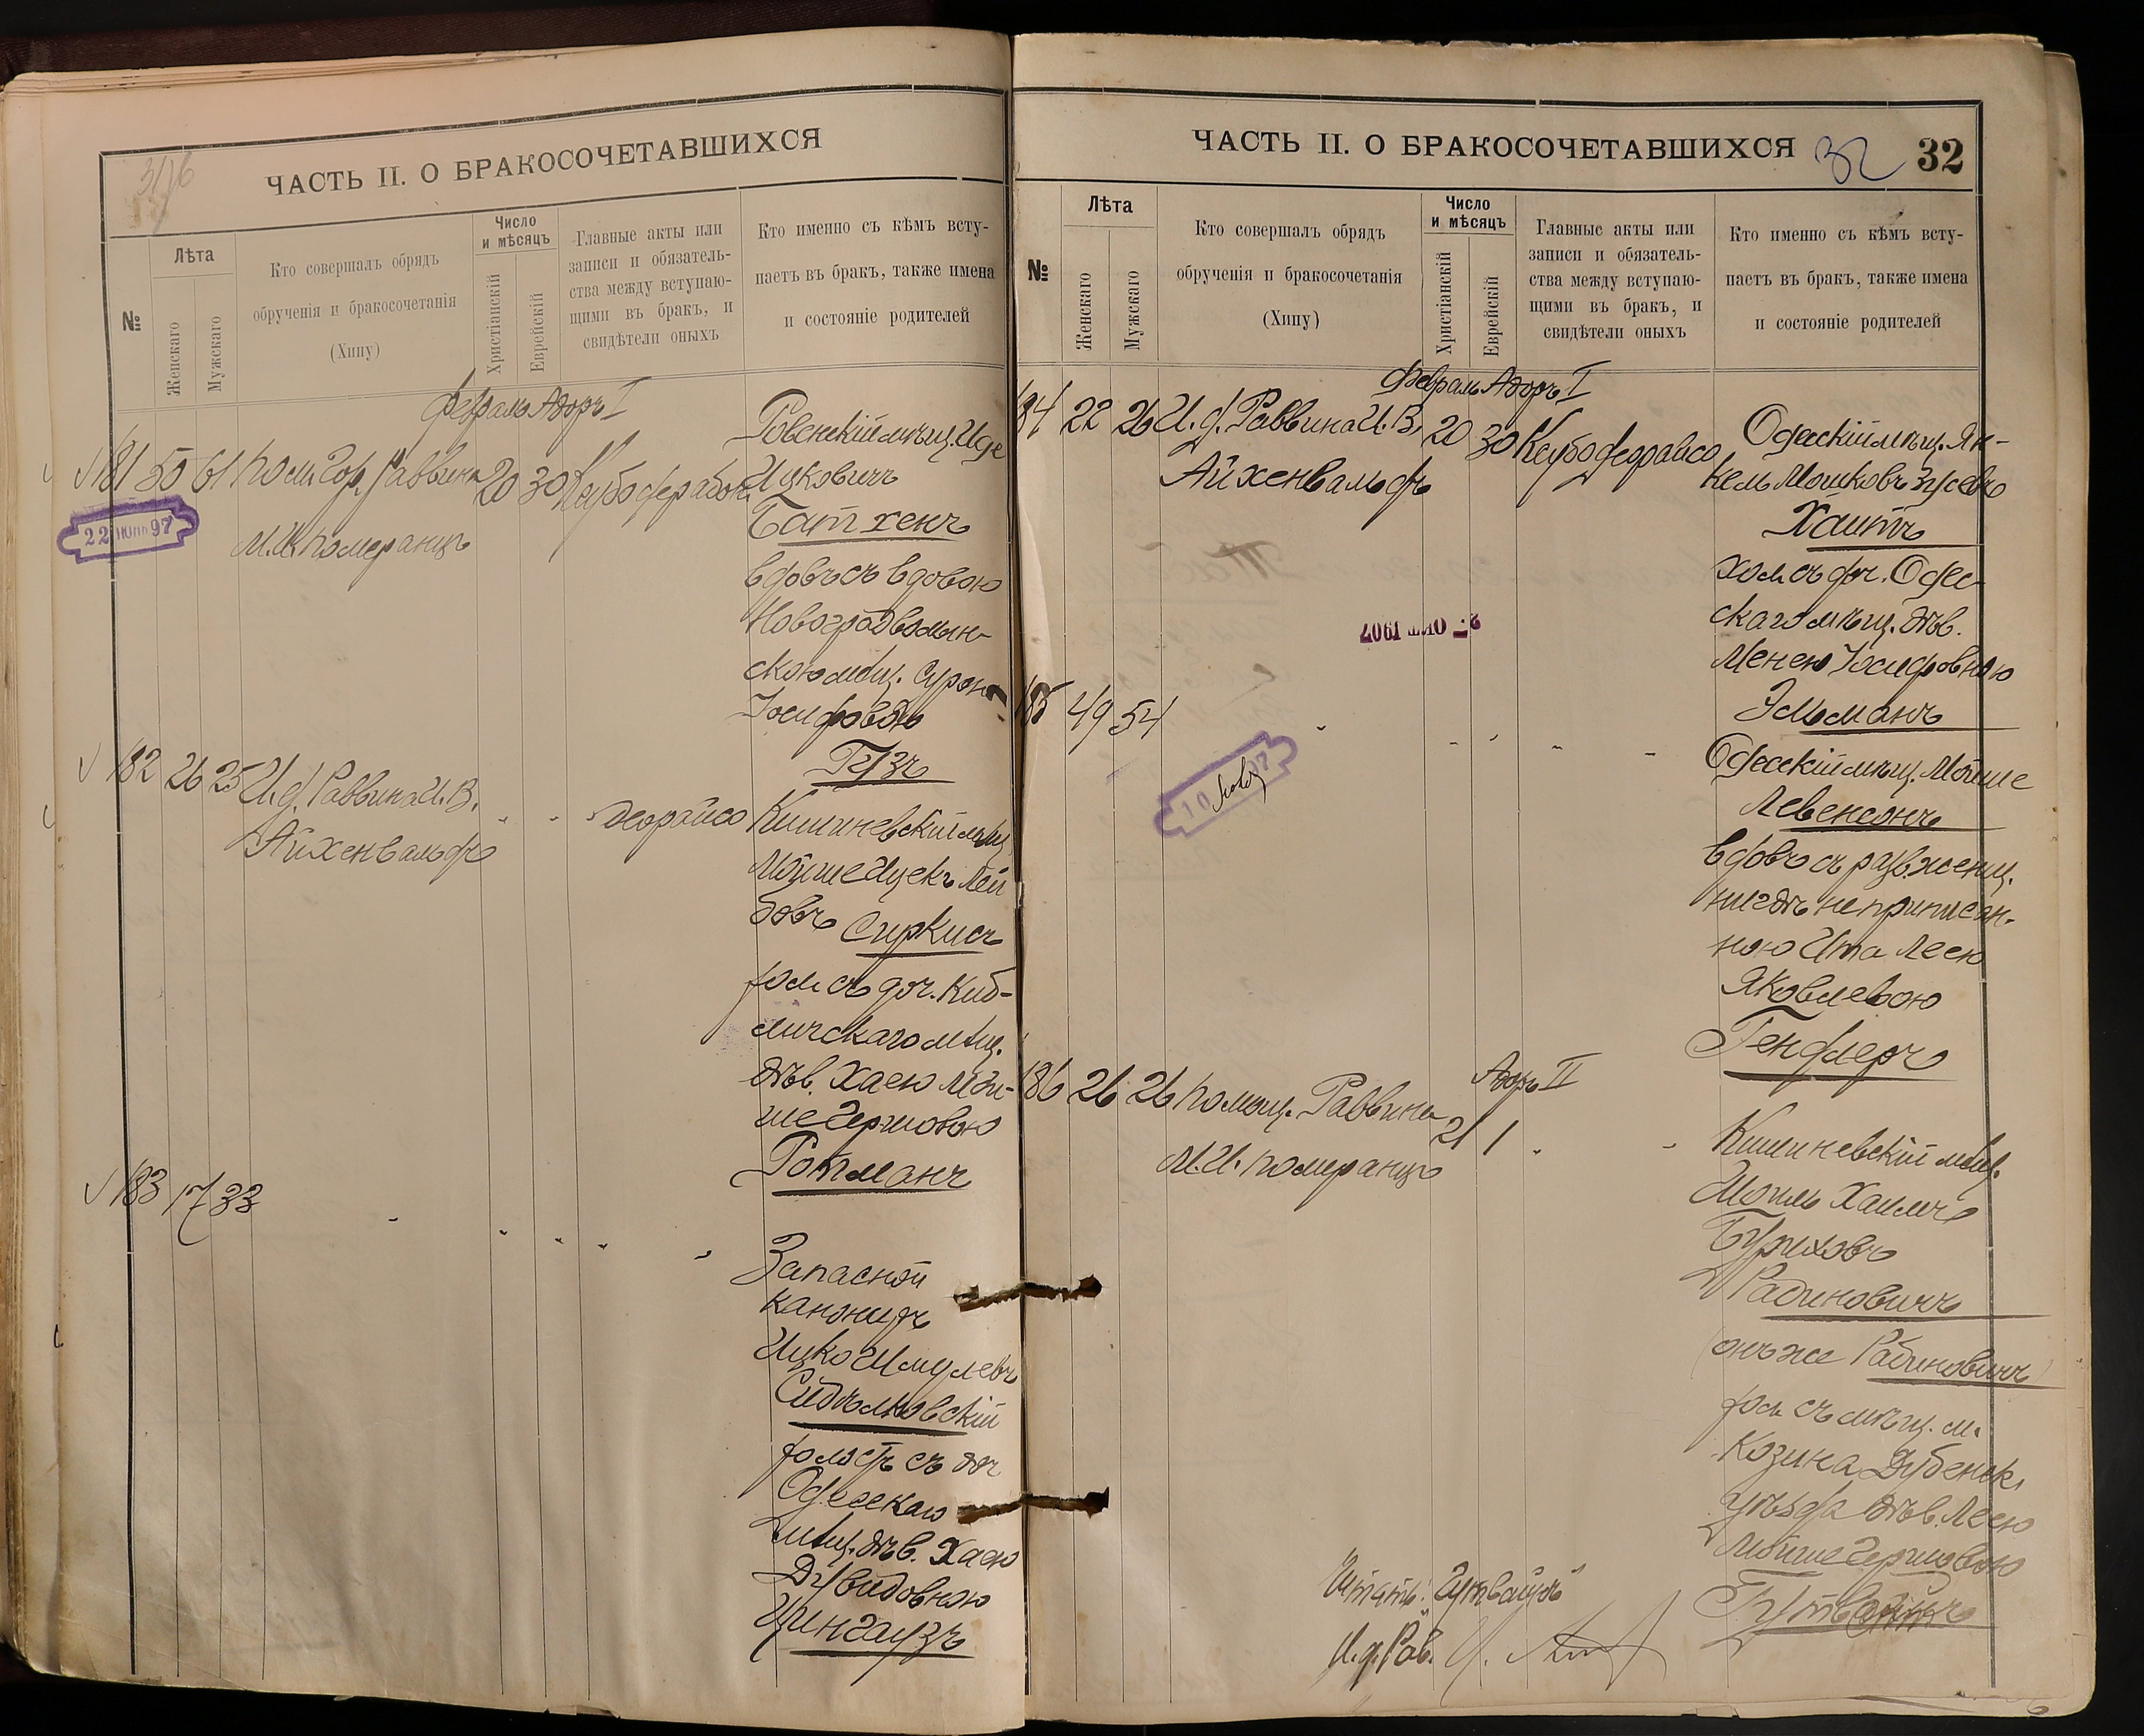 3176
ЧАСТЬ II. О БРАКОСОЧЕТАВШИХСЯ
№
Лѣта
Женскаго
Мужскаго
Кто совершалъ обрядъ
обрученія и бракосочетанія
(Хипу)
Число
и мѣсяцъ
Христіанскій
Еврейскій
Главные акты или
записи и обязатель-
ства между вступаю-
щими въ бракъ, и
свидѣтели оныхъ
Кто именно съ кѣмъ всту-
паетъ въ бракъ, также имена
и состояніе родителей
Февраль Адоръ I
181 50 61 Пом. Гор. Раввина 20 30
М.И. Померанцъ
22 ИЮНЬ 97
Ровенскій мѣщ. Иде
Ицковичъ
Батхенъ
вдовъ съ вдовою
Новоградволын-
скою мѣщ. Сурою
Іосифовою
Гузъ
182 26 25 И. д. Раввина И. В.
Айхенвальдъ
деорайсо
Кишиневскій мѣщ
Мойше Ицекъ Лей
бовъ Сиркисъ
хол съ доч. Киб-
личскаго мѣщ.
дѣв. Хаею Мой-
ше Гершовою
Ротманъ
183 17 33
Запасной
канониръ
Ицко Шмулевъ
Сидѣлковскій
холост съ доч
Одесскаго
мѣщ. дѣв. Хаею
Дувидовною
Цингаузъ
ЧАСТЬ II. О БРАКОСОЧЕТАВШИХСЯ
32
32
№
Лѣта
Женскаго
Мужскаго
Кто совершалъ обрядъ
обрученія и бракосочетанія
(Хипу)
Число
и мѣсяцъ
Христіанскій
Еврейскій
Главные акты или
записи и обязатель-
ства между вступаю-
щими въ бракъ, и
свидѣтели оныхъ
Кто именно съ кѣмъ всту-
паетъ въ бракъ, также имена
и состояніе родителей
Февраль Адоръ I
184 22 26 И. д. Раввина И. В. 20 30 Кеубо деорайсо
Айхенвальдъ
Одесскій мѣщ. Ян-
кель Мошковъ Зусевъ
Хаитъ
хол съ доч. Одес
скаго мѣщ. дѣв.
Менею Іосифовною
Эльманъ
ОКТ 1907
185 49 54
10
Одесскій мѣщ. Мойше
Левенсонъ
вдовъ съ разв. женщ.
нигдѣ не приписан-
ною Ита Лею
Яковлевою
Гендлеръ
Адоръ II
186 26 26 Помощ. Раввина 21 1
М.И. Померанцъ
Кишиневскій мѣщ.
Шоилъ Хаимъ
Буриховъ
Радиновичъ
онъ же Рабиновичъ
хол съ мѣщ. м.
Козина Дубенск.
уѣзда дѣв. Лею
Мойше Гершовою
Гутвайнъ
Читать: "Гутвайнъ"
И. д. Рав. И.